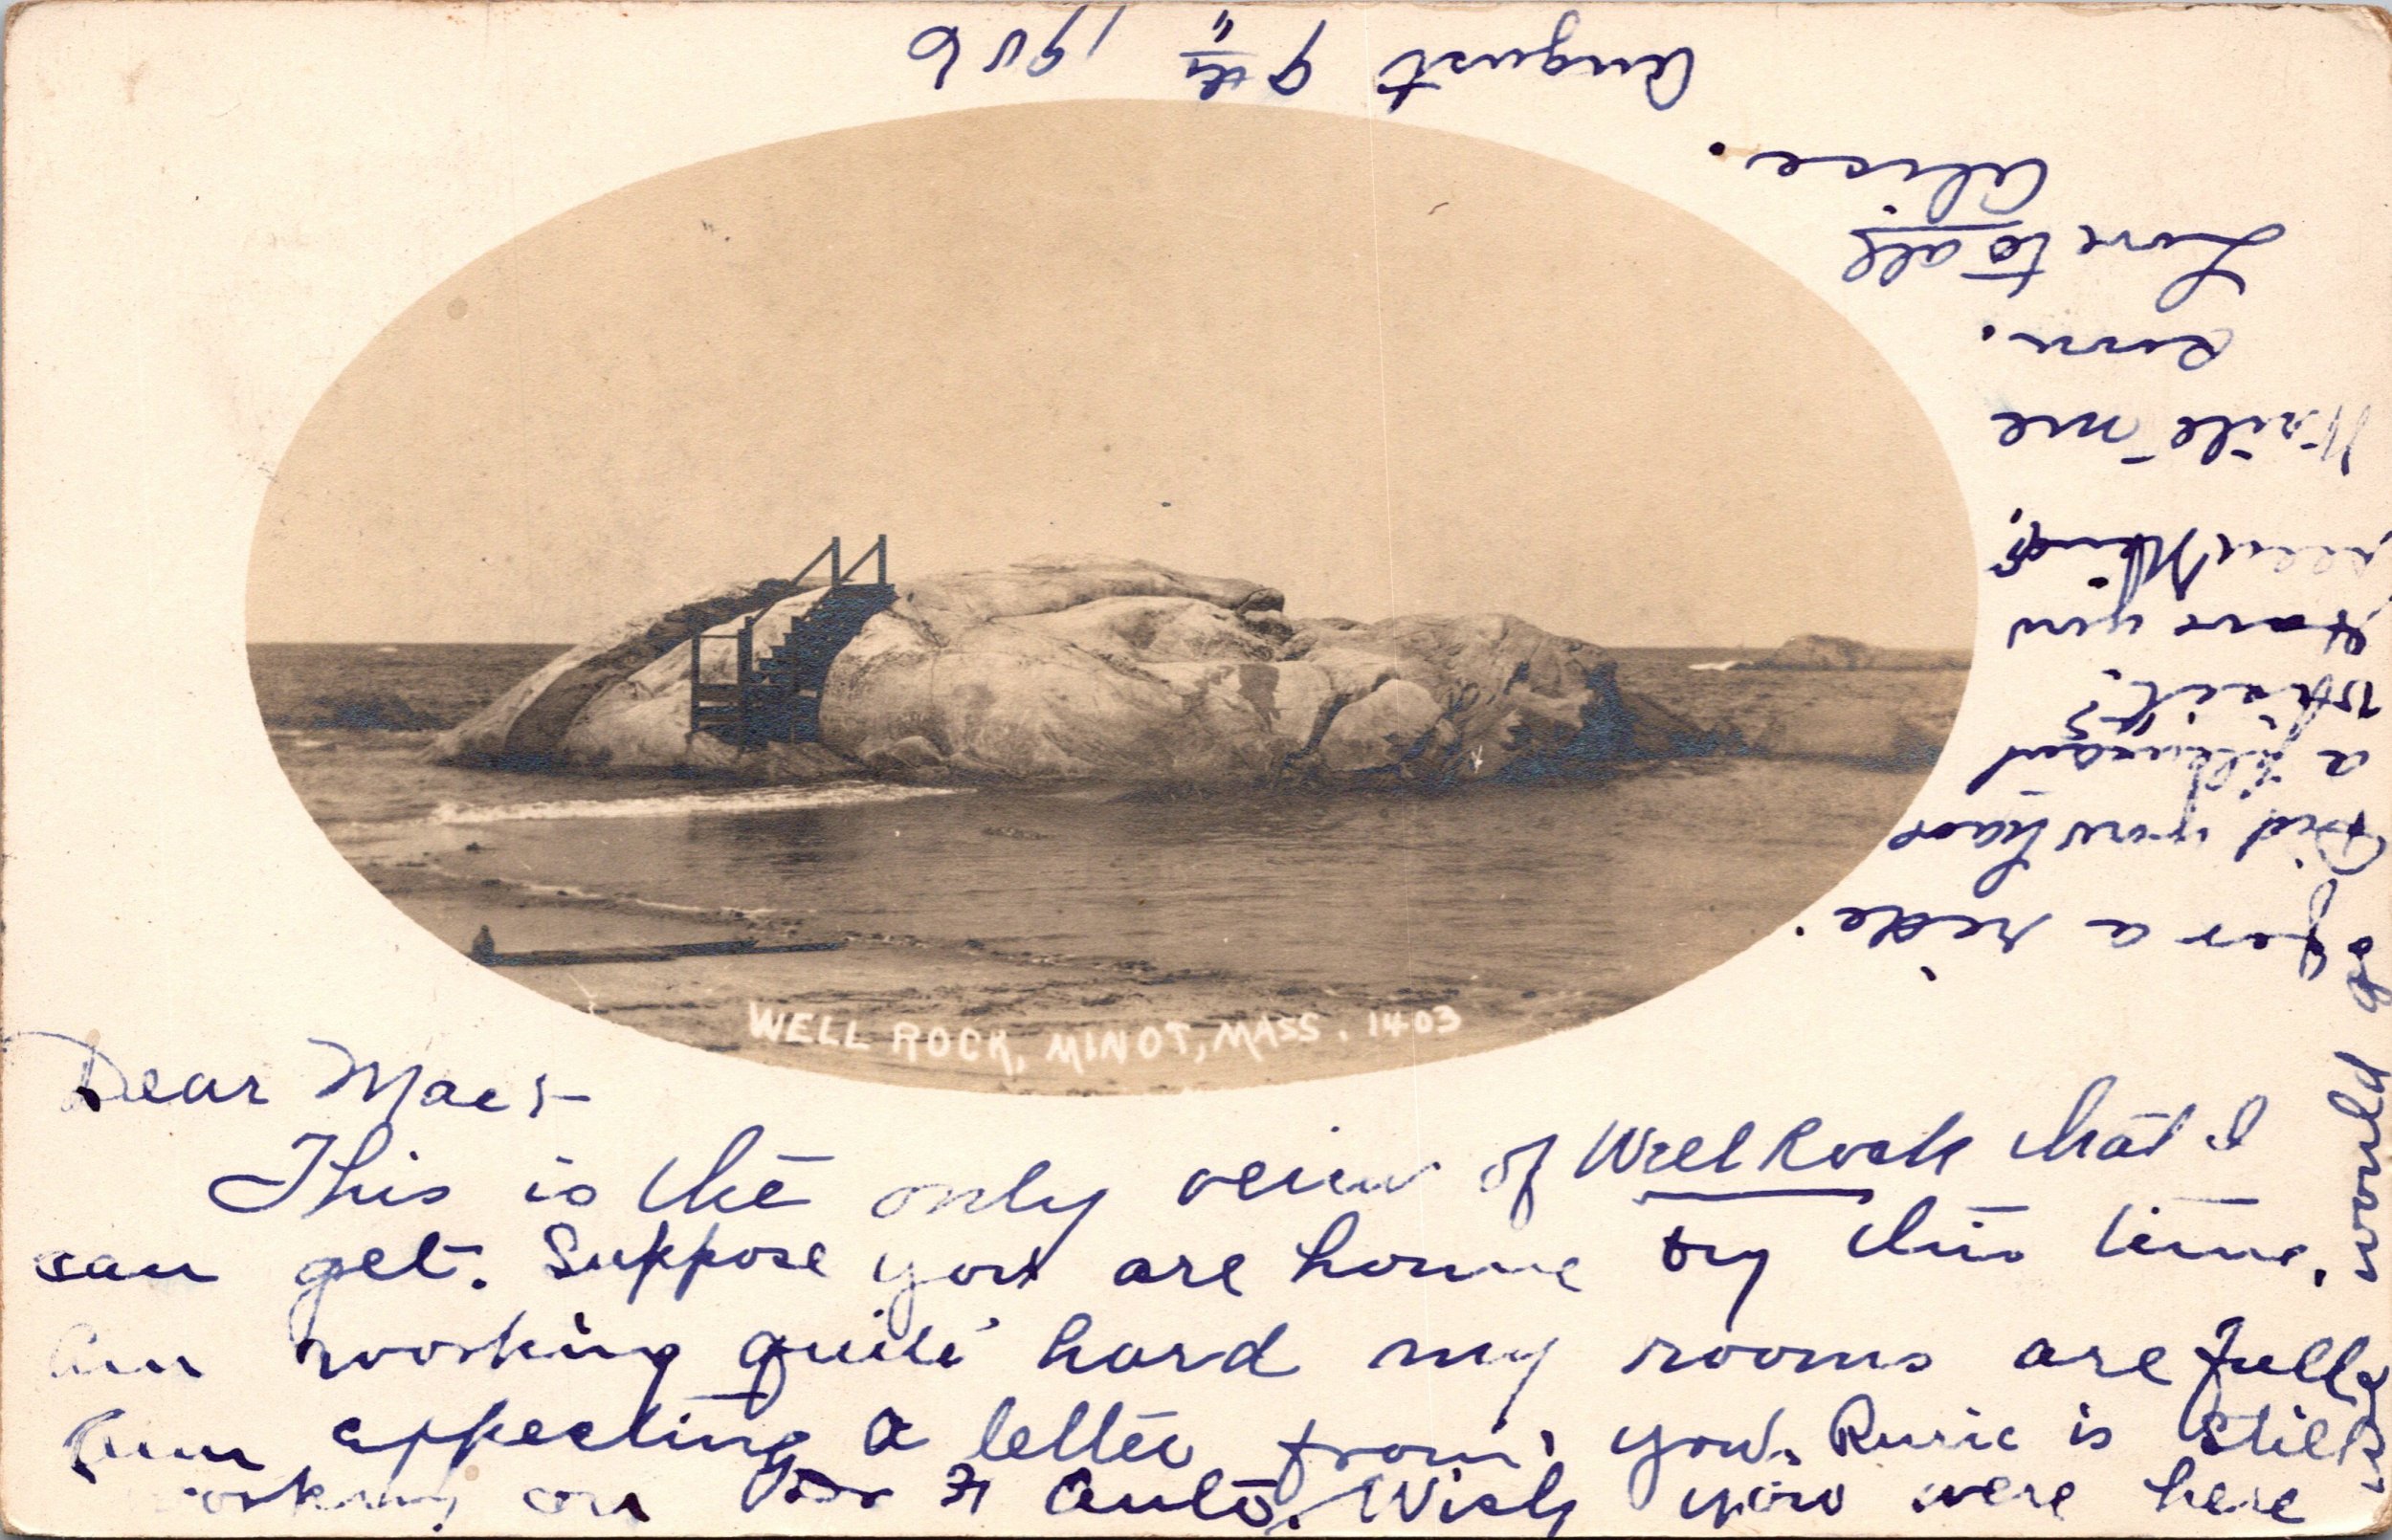 WELL ROCK, MINOT, MASS. 1403
Dear Mae:-
This is the only veiw of Well Rock that I
can get. Suppose you are home by this time.
Am working quite hard my rooms are full
Am expecting a letter from you. is still
working on Auto. Wish you were here
would go
for a ride.
Did you have
a pleasant
visit?
Have you
seen
Write me
soon.
Love to all
Alice.
August 9th 1906